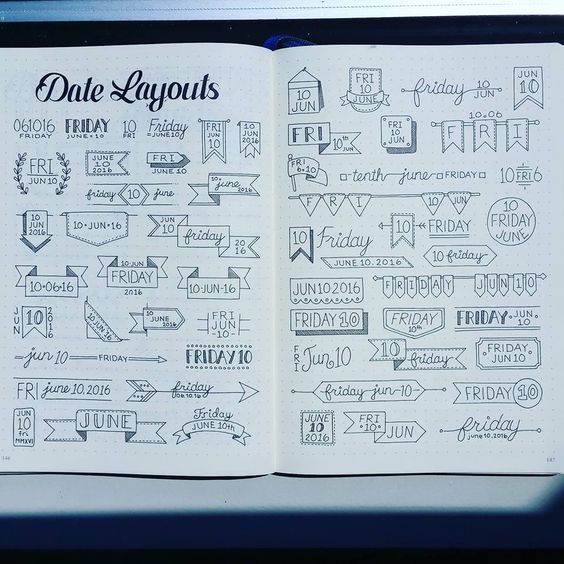 Date Layouts
061016
FRIDAY
FRIDAY
JUNE • 10
10
FRI
Friday
JUNE 10
FRI
JUN
10
10
JUN
2016
FRI
JUN 10
JUNE
10
2016
FRI
JUNE 10
10.
june
2016
friday 10 june
10
JUN
2016
10·JUN·16
JUN
10
friday
20
16
10·06·16
10·JUN
FRIDAY
2016
10·JUN·16
JUN
10
2016
10
JUN
2016
10
JUNE
2016
FRI
JUN
10
jun 10 FRIDAY
FRIDAY 10
FRI june 10.2016
friday
06.10.16
JUN
10
fri
MMXVI
JUNE
Friday
JUNE 10th
10
JUN
FRI
10
JUNE
friday 10
JUN
JUN
10
FRI
10th JUN
FRI
10
JUN
10.06
FRI
FRI
6•10
tenth june FRIDAY
10 FRI 6
FRI 10 JUN
10
JUN
Friday
JUNE 10.2016
10
JUN
FRIDAY
10
FRIDAY
JUNE
10 friday
JUN 10 2016
FRIDAY JUN 10
FRIDAY 10
FRIDAY
10th
FRIDAY • JUN •
10
FRI
Jun 10
10
JUN
friday
FRIDAY
JUN 10
friday-jun-10
FRIDAY 10
JUNE
10
2016
FRI
•10•
JUN
friday
june 10, 2016
146
147